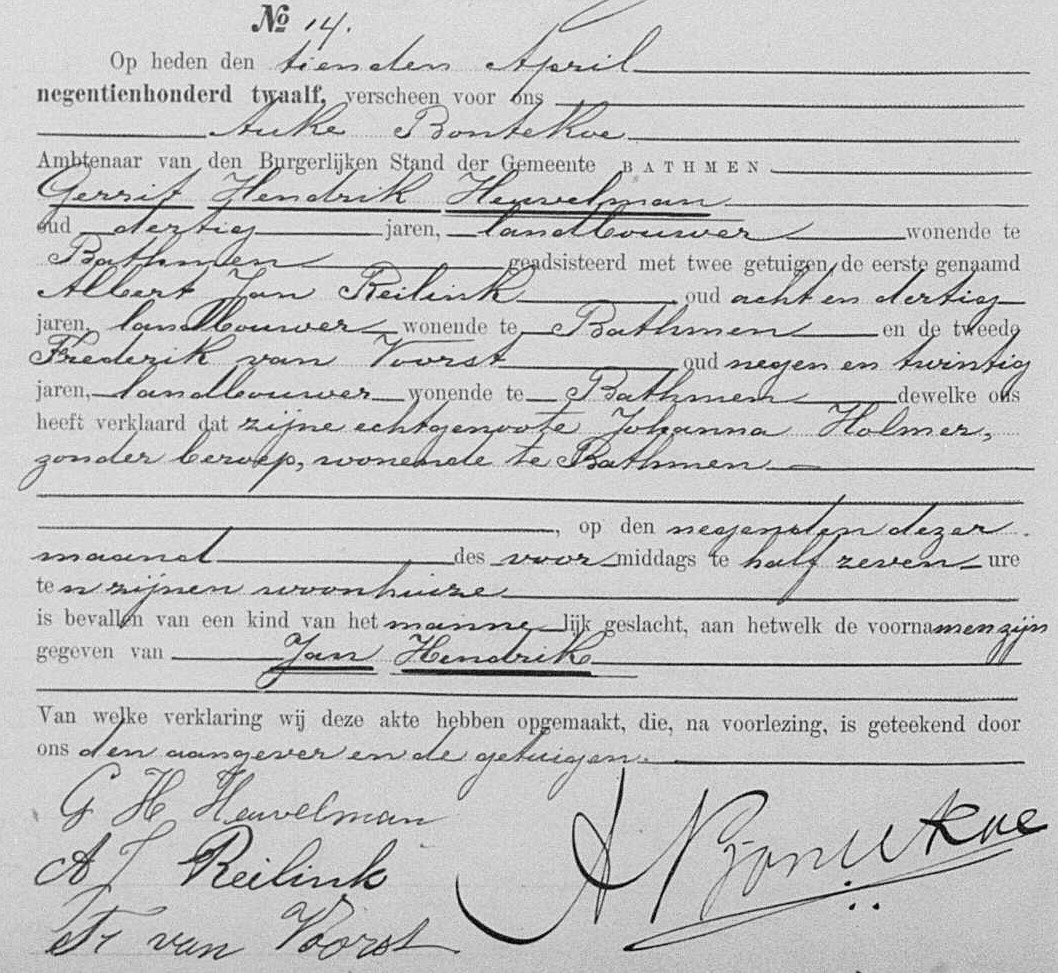 № 14.
Op heden den tienden April
negentienhonderd twaalf, verscheen voor ons
Auke Bontekoe
Ambtenaar van den Burgerlijken Stand der Gemeente BATHMEN
Gerrit Hendrik Heuvelman
oud dertig jaren, landbouwer wonende te
Bathmen geadsisteerd met twee getuigen, de eerste genaamd
Albert Jan Reilink, oud acht en dertig
jaren, landbouwer wonende te Bathmen en de tweede
Frederik van Voorst, oud negen en twintig
jaren, landbouwer wonende te Bathmen dewelke ons
heeft verklaard dat zijne echtgenoote Johanna Holmer,
zonder beroep, wonende te Bathmen
, op den negenden dezer
maand des voormiddags te half zeven ure
ten zijnen woonhuize
is bevallen van een kind van het mannelijk geslacht, aan hetwelk de voornamen zijn
gegeven van Jan Hendrik
Van welke verklaring wij deze akte hebben opgemaakt, die, na voorlezing, is geteekend door
ons den aangever en de getuigen.
G H Heuvelman
A J Reilink
Fr van Voorst
A Bontekoe